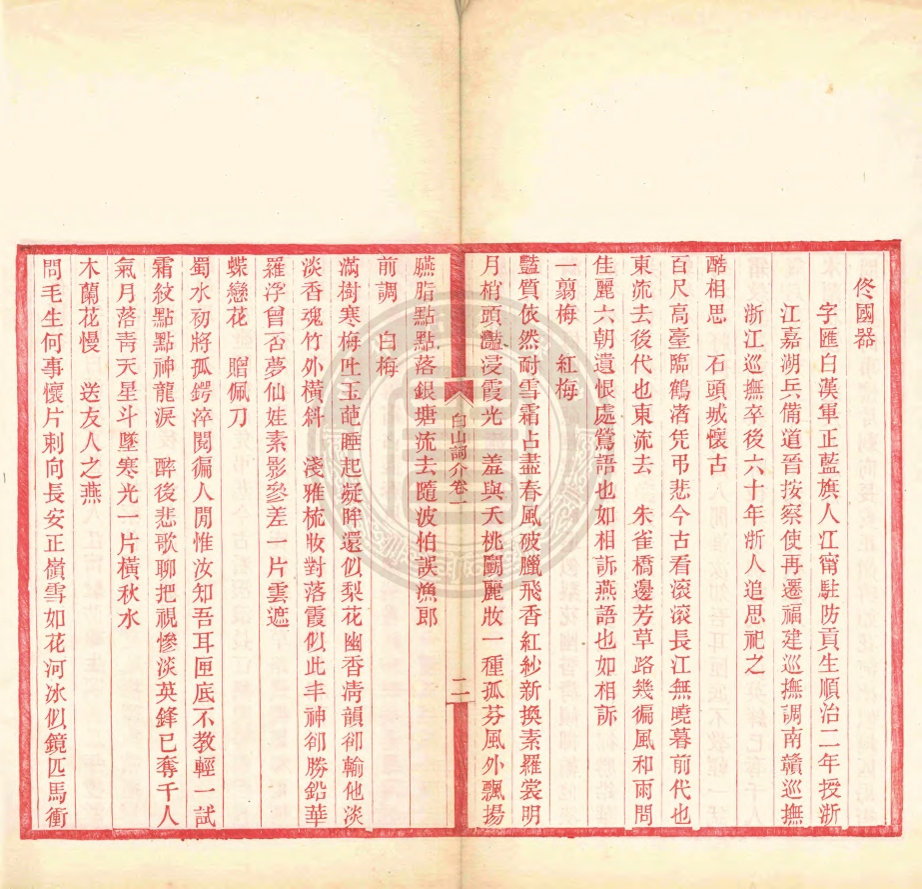 佟國器
字匯白漢軍正藍旗人江甯駐防貢生順治二年授浙
江嘉湖兵備道晉按察使再遷福建巡撫調南贛巡撫
浙江巡撫卒後六十年浙人追思祀之
酷相思 石頭城懷古
百尺高臺臨鶴渚凭弔悲今古看滚滚長江無曉暮前代也
東流去後代也東流去 朱雀橋邊芳草路幾徧風和雨問
佳麗六朝遺恨處鶯語也如相訴燕語也如相訴
一翦梅 紅梅
豔質依然耐雪霜占盡春風破臘飛香紅紗新換素羅裳明
月梢頭豔浸霞光 羞與夭桃鬭麗妝一種孤芬風外飄揚
臙脂點點落銀塘流去隨波怕誤漁郎
白山詞介卷一
二
前調 白梅
滿樹寒梅吐玉葩睡起凝眸還似梨花幽香淸韻卻輸他淡
淡香魂竹外橫斜 淺雅梳妝對落霞似此丰神卻勝鉛華
羅浮曾否夢仙娃素影參差一片雲遮
蝶戀花 贈佩刀
蜀水初將孤鍔淬閱徧人閒惟汝知吾耳匣底不教輕一試
霜紋點點神龍淚 醉後悲歌聊把視慘淡英鋒已奪千人
氣月落靑天星斗墜寒光一片橫秋水
木蘭花慢 送友人之燕
問毛生何事懷片刺向長安正嶺雪如花河冰似鏡匹馬衝